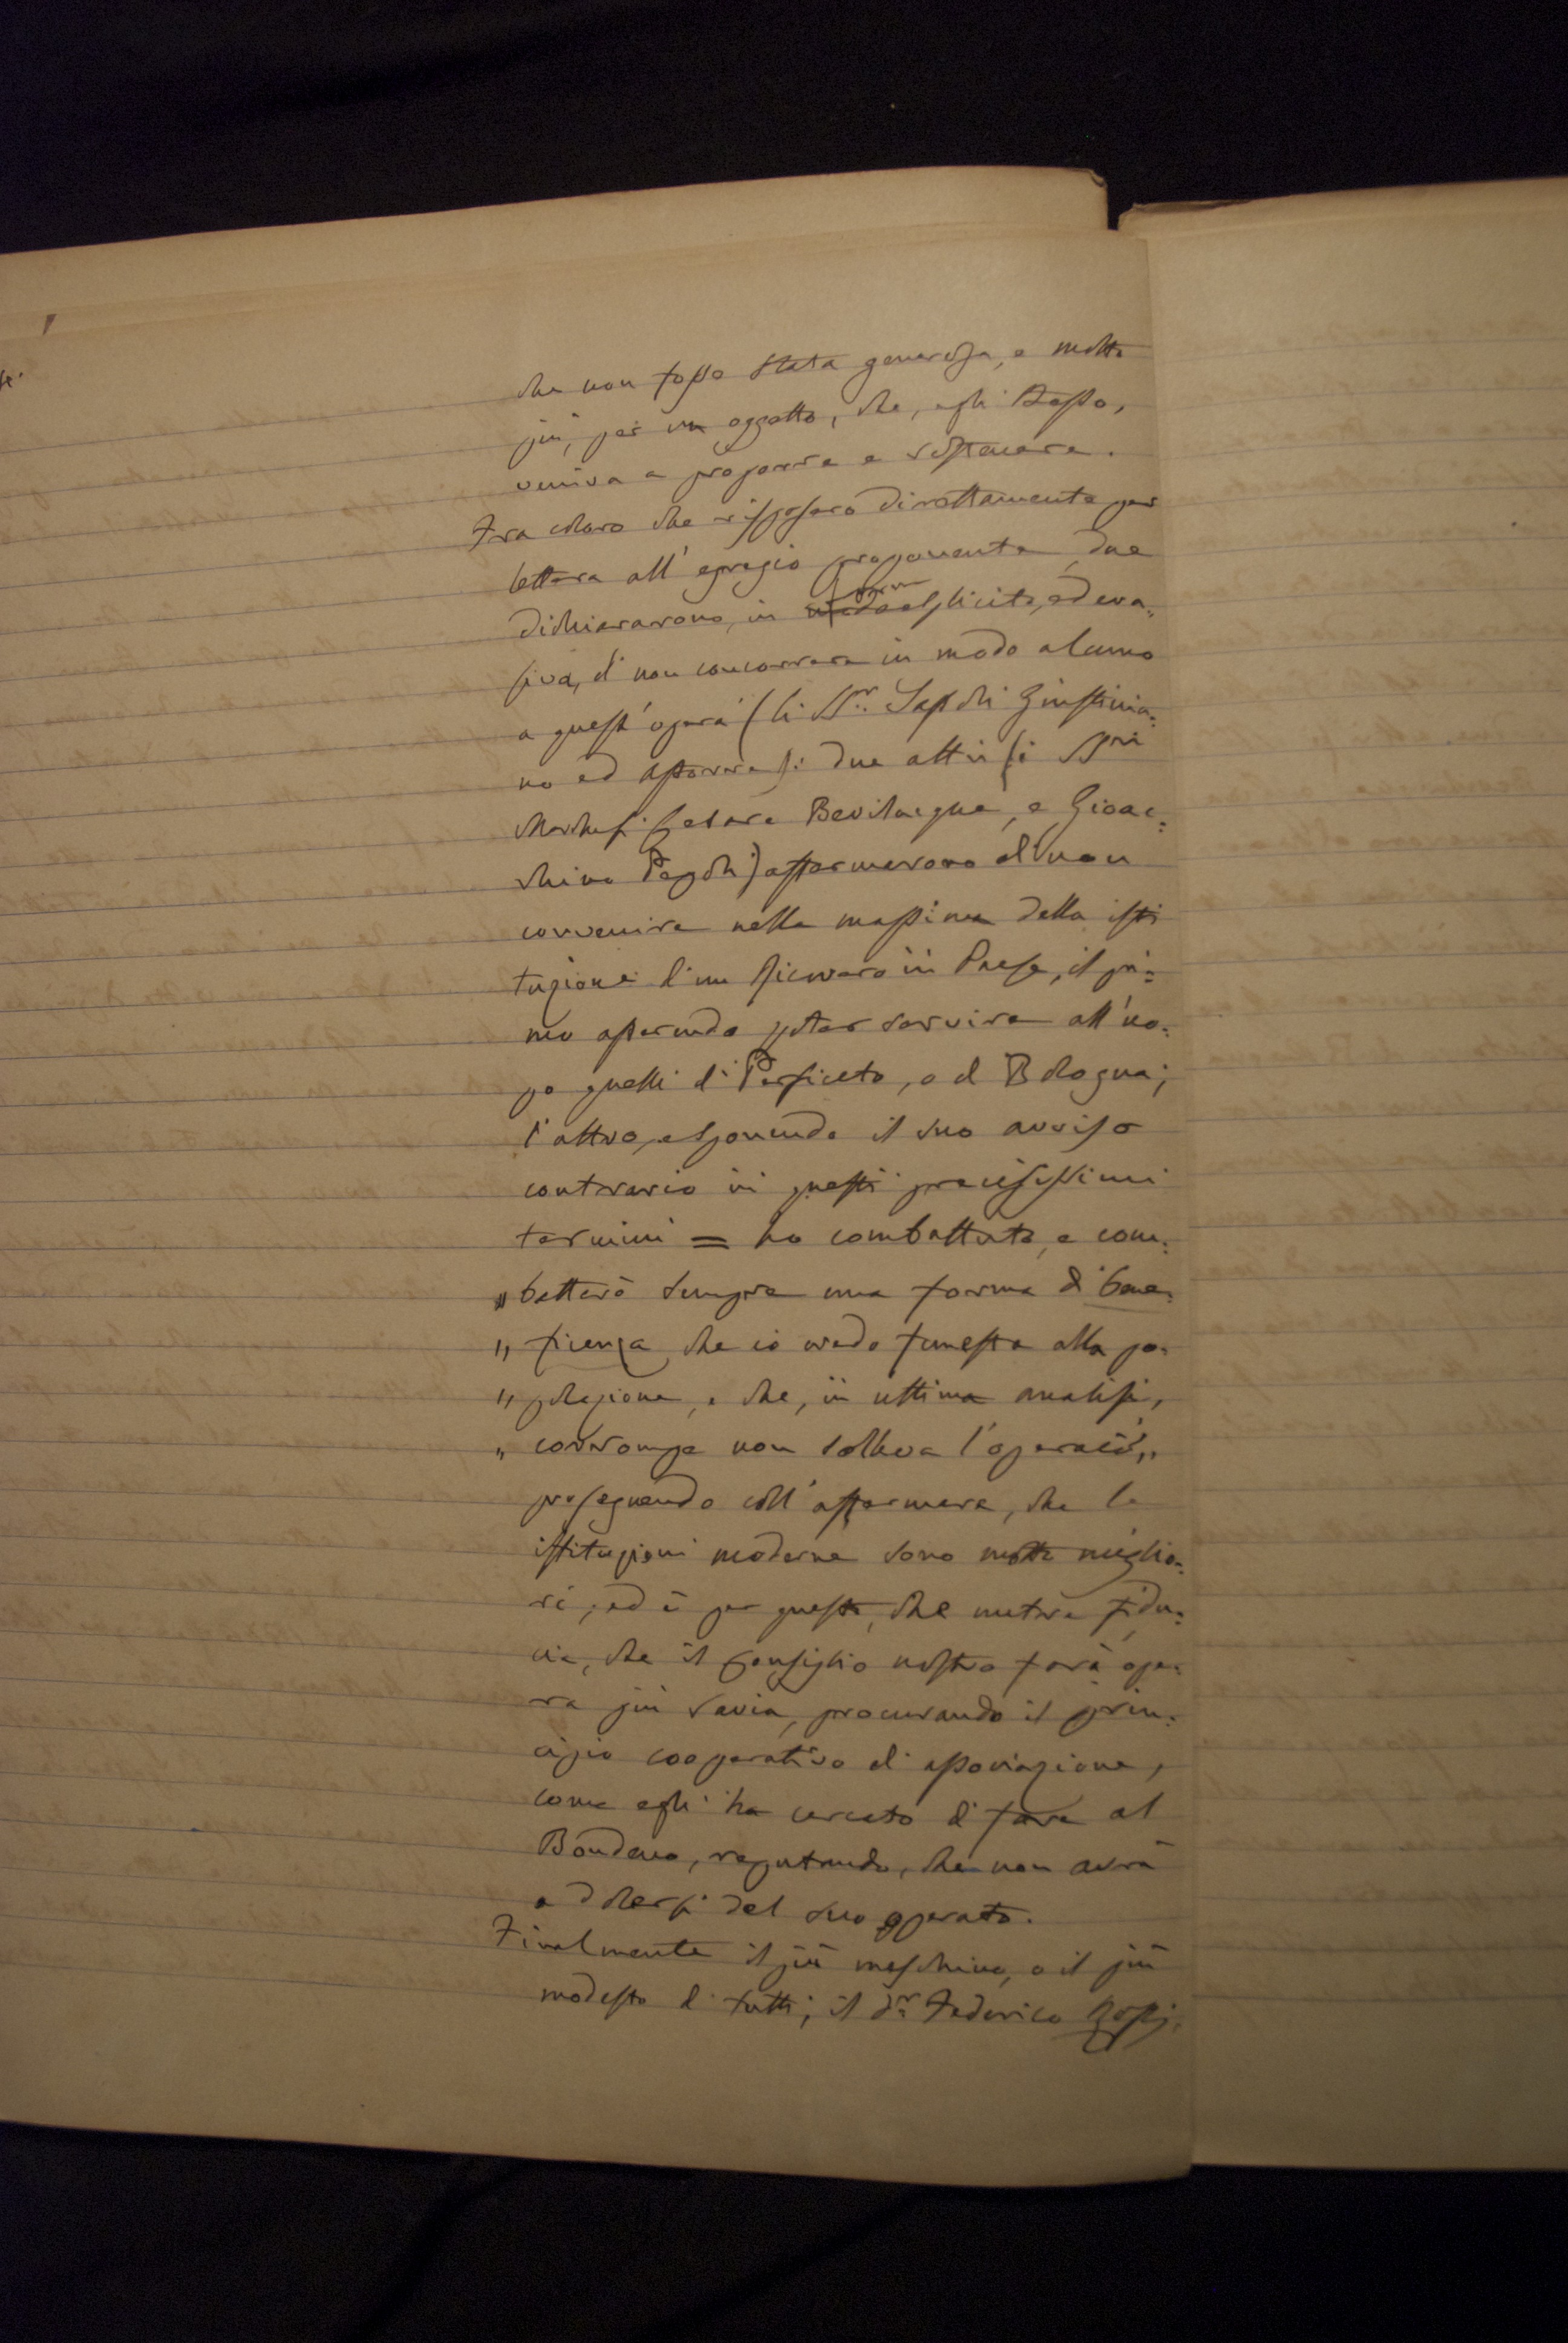 che non fosse stata generosa, e molto
più, per un oggetto, che, egli stesso,
veniva a proporre e sostenere.
Fra coloro che risposero direttamente per
lettera all'egregio proponente, due
dichiararono, in modo forma esplicita, ed eva=
siva, di non concorrere in modo alcuno
a quest'opera (li Sr. Giustinia=
no ed ): due altri (i Sgri
Marchesi Cesare Bevilacqua, e Gioac=
chino Pepoli) affermarono di non
convenire nella massima della isti
tuzione d'un Ricovero in Paese, il pri=
mo asserendo poter servire all'uo=
po quelli di Persiceto, o di Bologna;
l'altro, esponendo il suo avviso
contrario in questi precisissimi
termini = ho combattuto, e com=
" batterò sempre una forma di bene=
" ficenza che io credo funesta alla po=
" polazione, e che, in ultima analisi,
" corrompe non solleva l'operaio „
proseguendo coll'affermare, che le
istituzioni moderne sono molto miglio=
ri; ed è per questo, che nutre fidu=
cia, che il Consiglio nostro farà ope=
ra più savia, procurando il prin=
cipio cooperativo di associazione,
come egli ha cercato di fare al
Bondeno, reputando, che non avrà
a dolersi del suo operato.
Finalmente il più meschino, o il più
modesto di tutti, il Dr. Federico Rossi,